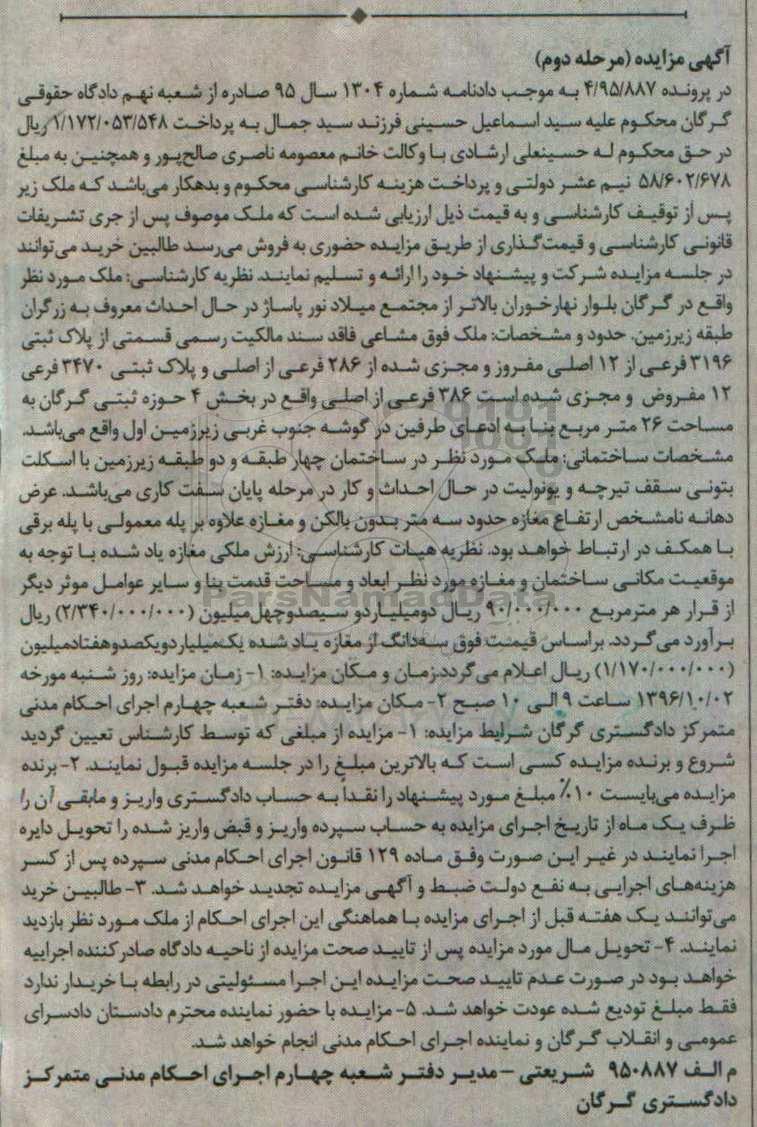 آگهی مزایده (مرحله دوم)
در پرونده ۴/۹۵/۸۸۷ به موجب دادنامه شماره ۱۳۰۴ سال ۹۵ صادره از شعبه نهم دادگاه حقوقی
گرگان محکوم علیه سید اسماعیل حسینی فرزند سید جمال به پرداخت ۱/۱۷۲/۰۵۳/۵۴۸ ریال
در حق محکوم له حسینعلی ارشادی با وکالت خانم معصومه ناصری صالح‌پور و همچنین به مبلغ
۵۸/۶۰۲/۶۷۸ نیم عشر دولتی و پرداخت هزینه کارشناسی محکوم و بدهکار می‌باشد که ملک زیر
پس از توقیف کارشناسی و به قیمت ذیل ارزیابی شده است که ملک موصوف پس از جری تشریفات
قانونی کارشناسی و قیمت‌گذاری از طریق مزایده حضوری به فروش می‌رسد طالبین خرید می‌توانند
در جلسه مزایده شرکت و پیشنهاد خود را ارائه و تسلیم نمایند. نظریه کارشناسی: ملک مورد نظر
واقع در گرگان بلوار نهارخوران بالاتر از مجتمع میلاد نور پاساژ در حال احداث معروف به زرگران
طبقه زیرزمین. حدود و مشخصات: ملک فوق مشاعی فاقد سند مالکیت رسمی قسمتی از پلاک ثبتی
۳۱۹۶ فرعی از ۱۲ اصلی مفروز و مجزی شده از ۲۸۶ فرعی از اصلی و پلاک ثبتی ۳۴۷۰ فرعی
۱۲ مفروض و مجزی شده است ۳۸۶ فرعی از اصلی واقع در بخش ۴ حوزه ثبتی گرگان به
مساحت ۲۶ متر مربع بنا به ادعای طرفین در گوشه جنوب غربی زیرزمین اول واقع می‌باشد.
مشخصات ساختمانی: ملک مورد نظر در ساختمان چهار طبقه و دو طبقه زیرزمین با اسکلت
بتونی سقف تیرچه و یونولیت در حال احداث و کار در مرحله پایان سفت کاری می‌باشد. عرض
دهانه نامشخص ارتفاع مغازه حدود سه متر بدون بالکن و مغازه علاوه بر پله معمولی با پله برقی
با همکف در ارتباط خواهد بود. نظریه هیات کارشناسی: ارزش ملکی مغازه یاد شده با توجه به
موقعیت مکانی ساختمان و مغازه مورد نظر ابعاد و مساحت قدمت بنا و سایر عوامل موثر دیگر
از قرار هر مترمربع ۹۰/۰۰۰/۰۰۰ ریال دومیلیاردو سیصدوچهل‌میلیون (۲/۳۴۰/۰۰۰/۰۰۰) ریال
برآورد می‌گردد. براساس قیمت فوق سه‌دانگ از مغازه یاد شده یک‌میلیاردویکصدوهفتادمیلیون
(۱/۱۷۰/۰۰۰/۰۰۰) ریال اعلام می‌گردد.زمان و مکان مزایده: ۱- زمان مزایده: روز شنبه مورخه
۱۳۹۶/۱۰/۰۲ ساعت ۹ الی ۱۰ صبح ۲- مکان مزایده: دفتر شعبه چهارم اجرای احکام مدنی
متمرکز دادگستری گرگان شرایط مزایده: ۱- مزایده از مبلغی که توسط کارشناس تعیین گردید
شروع و برنده مزایده کسی است که بالاترین مبلغ را در جلسه مزایده قبول نمایند. ۲- برنده
مزایده می‌بایست ۱۰٪ مبلغ مورد پیشنهاد را نقداً به حساب دادگستری واریز و مابقی آن را
ظرف یک ماه از تاریخ اجرای مزایده به حساب سپرده واریز و قبض واریز شده را تحویل دایره
اجرا نمایند در غیر این صورت وفق ماده ۱۲۹ قانون اجرای احکام مدنی سپرده پس از کسر
هزینه‌های اجرایی به نفع دولت ضبط و آگهی مزایده تجدید خواهد شد. ۳- طالبین خرید
می‌توانند یک هفته قبل از اجرای مزایده با هماهنگی این اجرای احکام از ملک مورد نظر بازدید
نمایند. ۴- تحویل مال مورد مزایده پس از تایید صحت مزایده از ناحیه دادگاه صادرکننده اجراییه
خواهد بود در صورت عدم تایید صحت مزایده این اجرا مسئولیتی در رابطه با خریدار ندارد
فقط مبلغ تودیع شده عودت خواهد شد. ۵- مزایده با حضور نماینده محترم دادستان دادسرای
عمومی و انقلاب گرگان و نماینده اجرای احکام مدنی انجام خواهد شد.
م الف ۹۵۰۸۸۷ شریعتی – مدیر دفتر شعبه چهارم اجرای احکام مدنی متمرکز
دادگستری گرگان
ParsNamadData